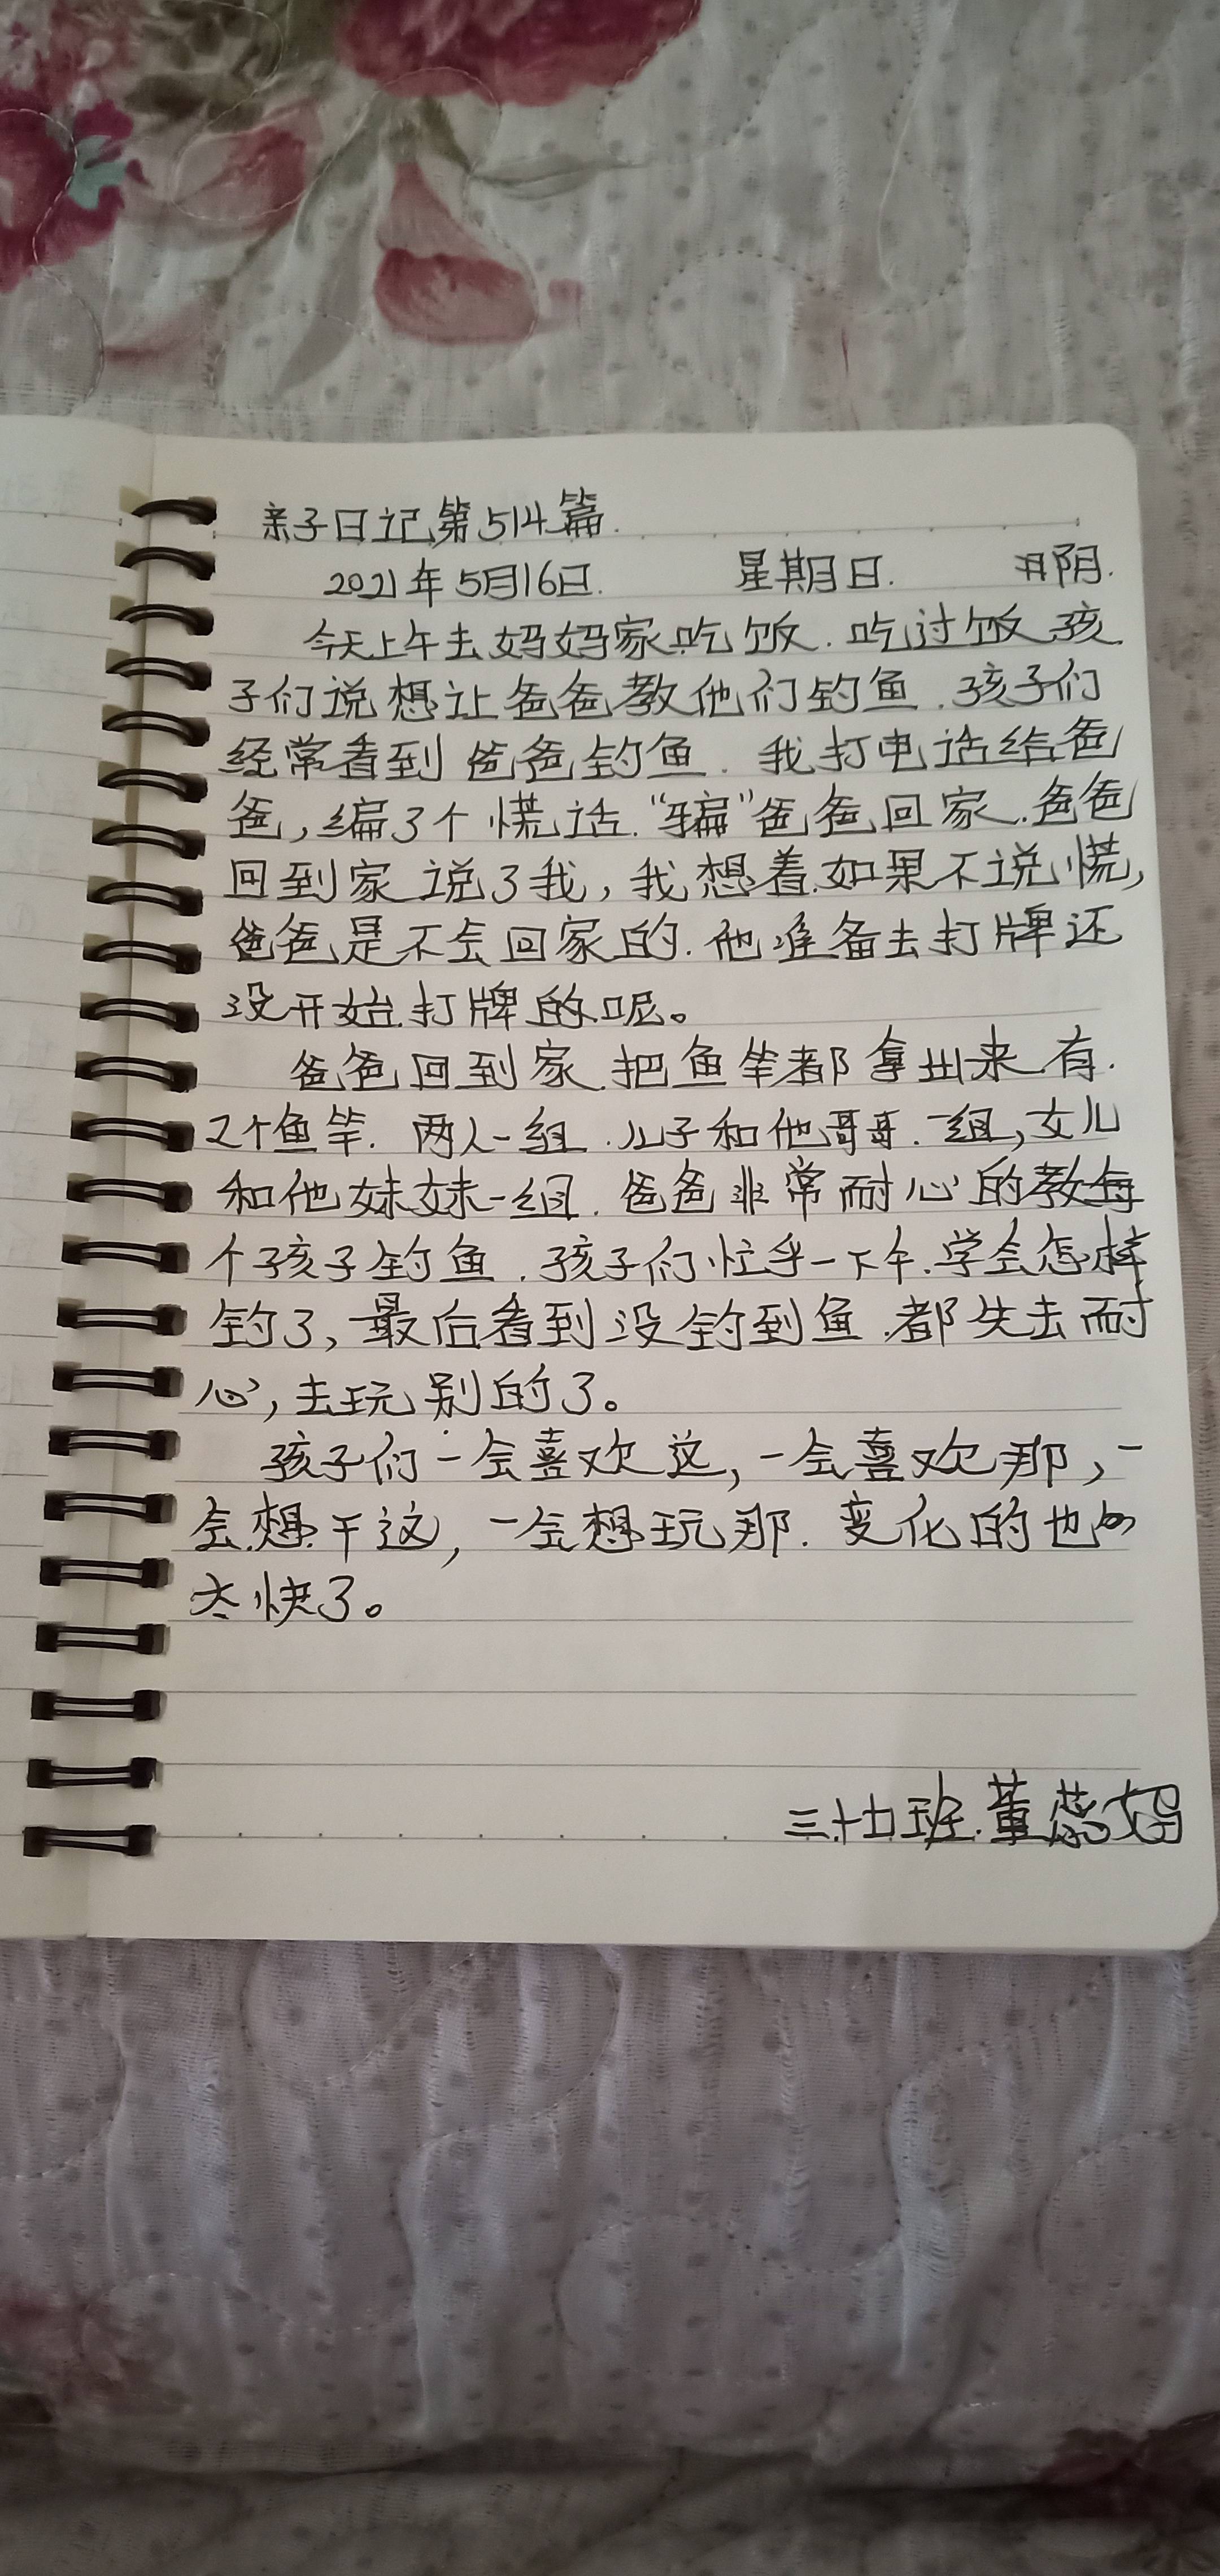 亲子日记第514篇.
2021年5月16日. 星期日. 阴.
今天上午去妈妈家吃饭.吃过饭孩
子们说想让爸爸教他们钓鱼.孩子们
经常看到爸爸钓鱼.我打电话给爸
爸,编了个慌话."骗"爸爸回家.爸爸
回到家说了我,我想着.如果不说慌,
爸爸是不会回家的.他准备去打牌还
没开始打牌的呢。
爸爸回到家.把鱼竿都拿出来有.
2个鱼竿.两人一组.儿子和他哥哥.一组,女儿
和他妹妹一组.爸爸非常耐心的教每
个孩子钓鱼.孩子们忙乎一下午.学会怎样
钓了,最后看到没钓到鱼.都失去耐
心,去玩别的了。
孩子们一会喜欢这,一会喜欢那,一
会想干这,一会想玩那.变化的也
太快了。
三.十七班.董蕊妈